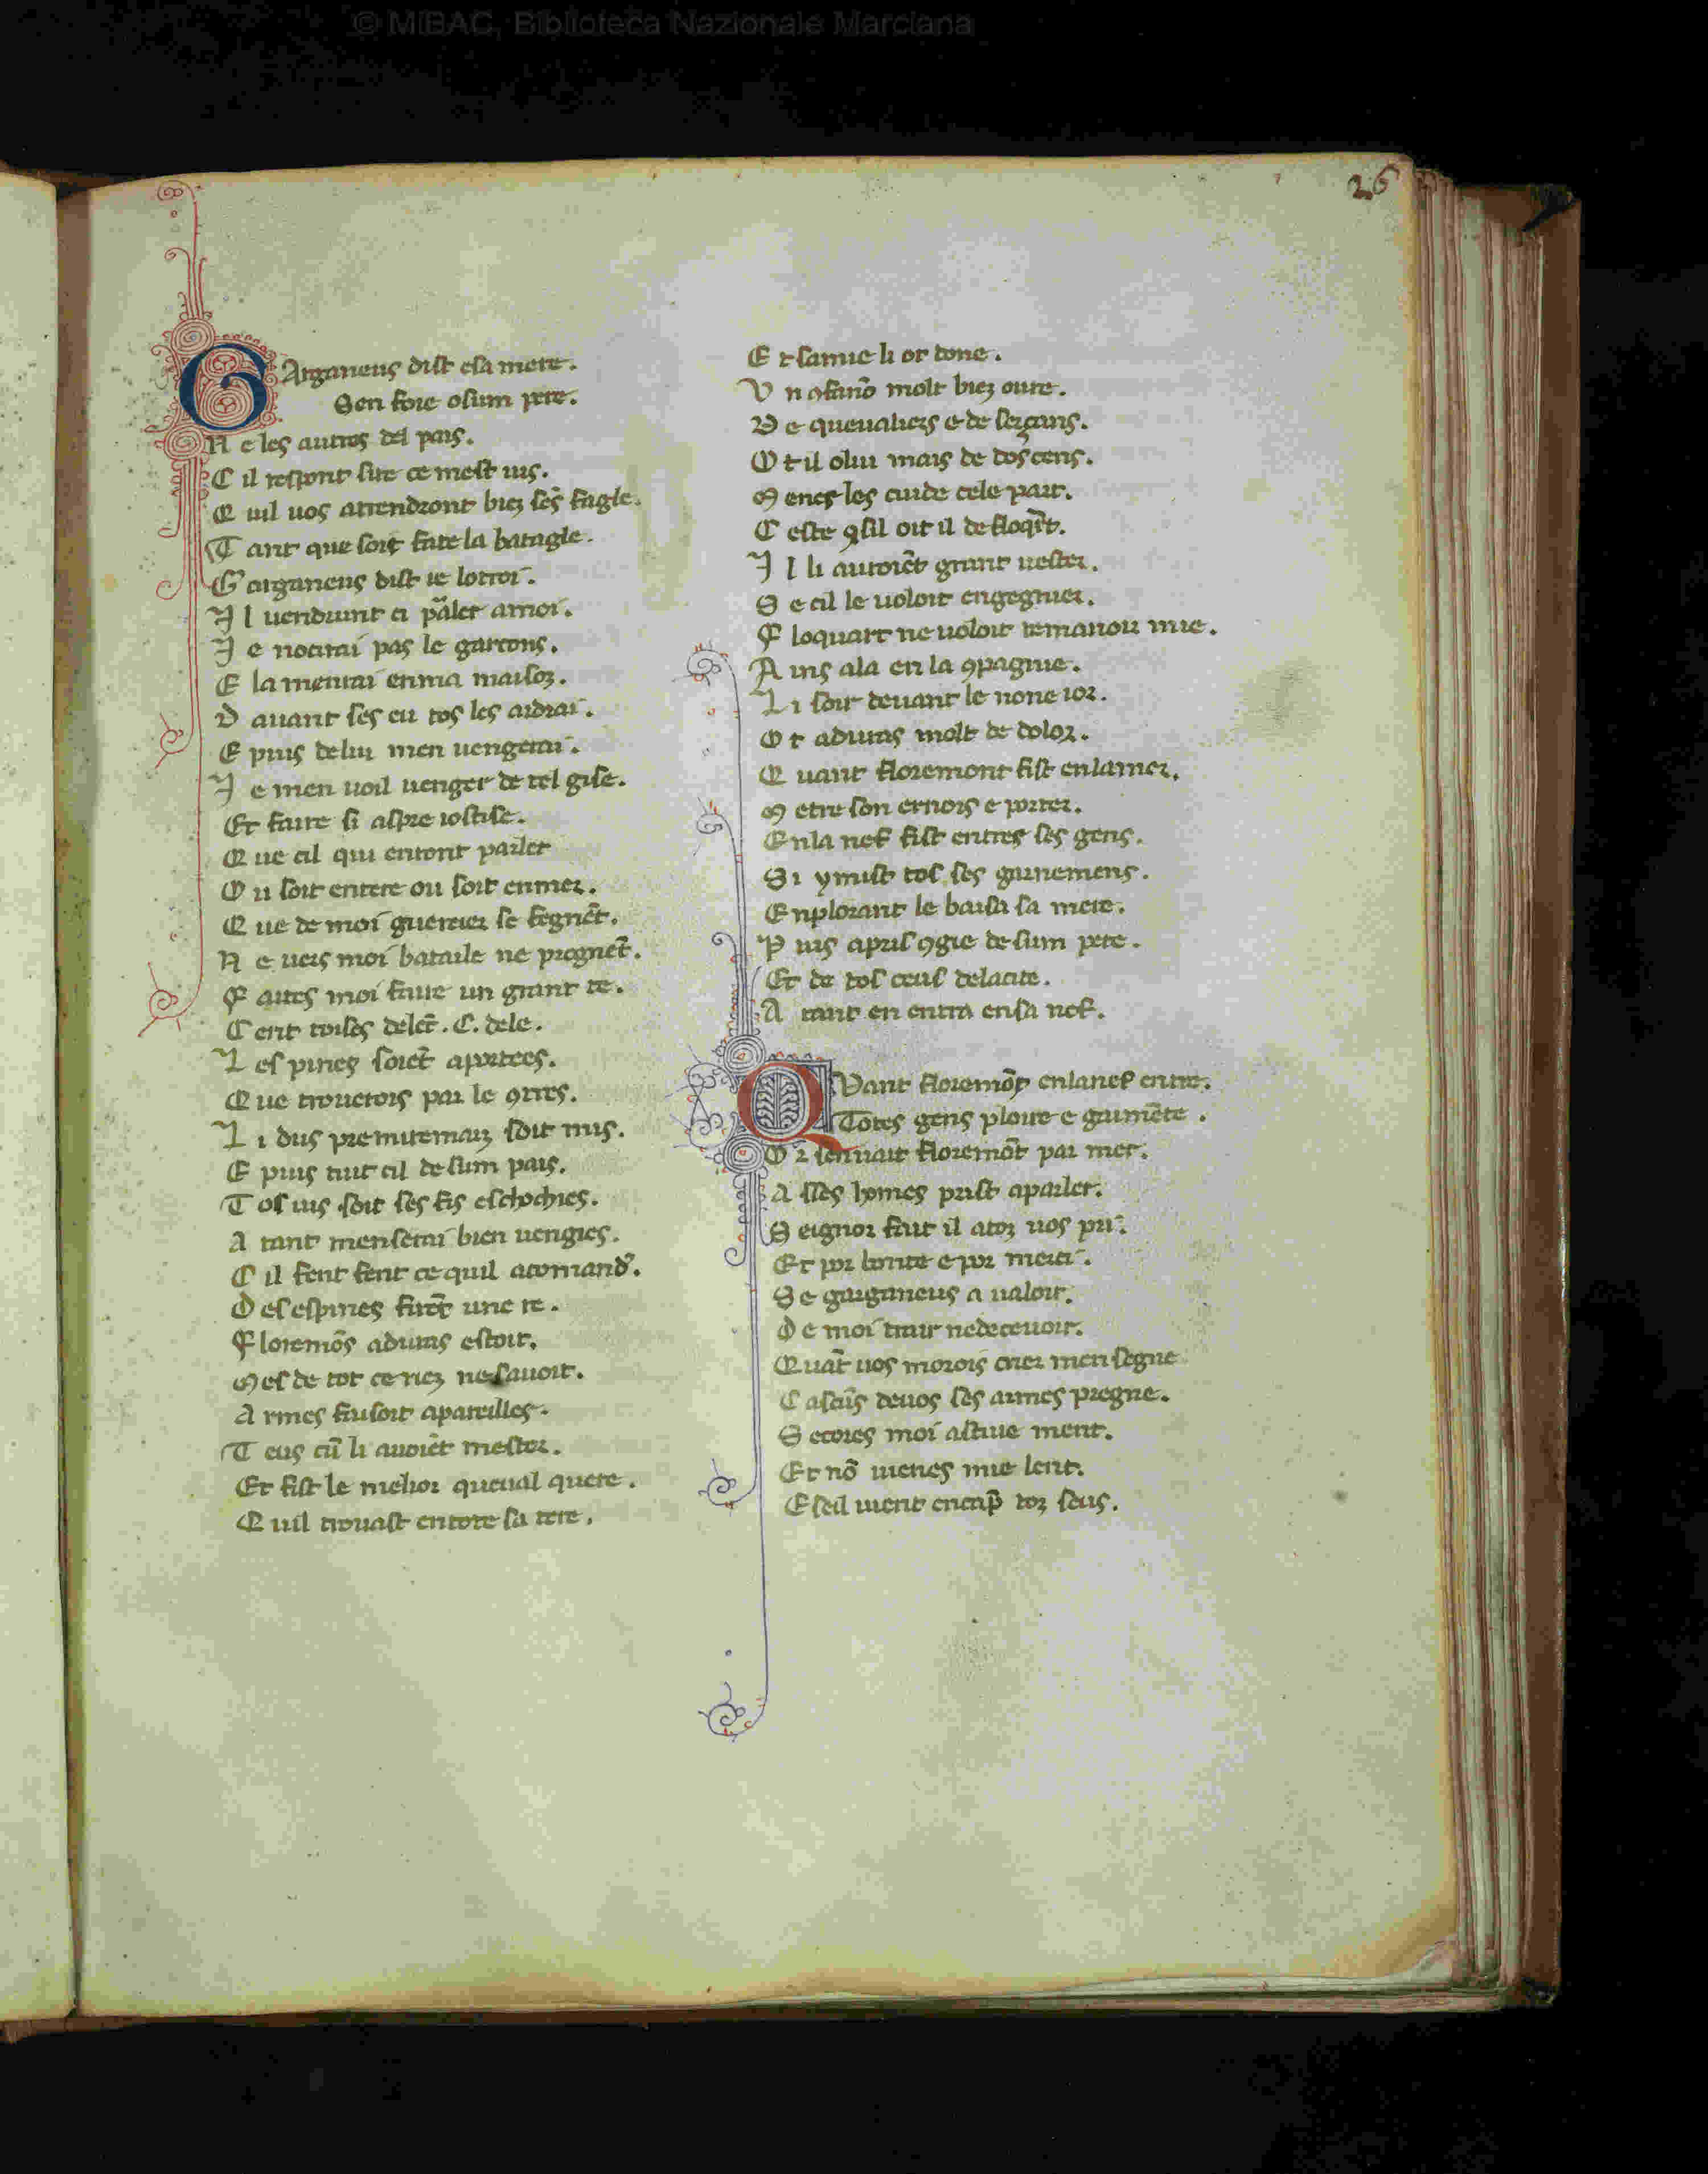 © MiBAC, Biblioteca Nazionale Marciana
26
GArganeus dist esa mere.
Sen fore osum pere.
N e les autres del pais.
C il respont sire ce mest uis.
Q uil uos atendront biez ses fagle.
T ant que soit fate la batagle.
G arganeus dist ie lotroi.
J l uendrunt a p̃aler amoi.
J e nocirai pas le garcons.
E la menrai enma maisoz.
D auant ses eu tos les ardrai.
E puis delui men uengerai.
J e men uoil uenger de tel gise.
Et faire si aspre iostise.
Q ue cil qui entont parler
O u soit entere ou soit enmer.
Q ue de moi guerrier se fegnẽt.
N e uers moi bataile ne pregnẽt.
F aites moi faire un grant re.
C ent toises delẽ. C. dele.
L es pines soiẽt aportees.
Q ue trouerois par le ꝯtres.
L i dus premiremaiz soit mis.
E puis tuit cil de sum pais.
T os uis soit ses fis eschochies.
A tant menserai bien uengies.
C il fent fent ce quil acomand̃.
D es espines firõt une re.
F loremõs aduras estoit.
M es de tot ce riez ne sauoit.
A rmes faisoit apareilles.
T eus cũ li auoiẽt mester.
Et fist le melior queual quere.
Q uil trouast entote sa tere.
E t samie li or done.
U n ꝯfanõ molt biez oure.
D e queualiers e de sergans.
O t il olui mais de doscens.
M enes les cuide cele part.
C este ꝯsil oit il de floq̃rt.
J l li auroiẽt grant mester.
S e cil le uoloit engegnier.
F loquart ne uoloit remanoir mie.
A ins ala en la ꝯpagnie.
L i soir deuant le none ior.
O t aduras molt de dolor.
Q uant floremont fist enlamer.
M etre son ernois e porter.
Enla nef fist entrer ses gens.
Si ymist tos ses garnemens.
Enplorant le baisa sa mere.
P uis aprist ꝯgie de sum pere.
Et de tos ceus delacite.
A tant en entra ensa nef.
QVant floremõt enlanef entre.
Totes gens ploure e gaimẽte.
O r senuait floremõt par mer.
A sses homes prist aparler.
S eignor fait il atoz uos pri.
Et por bonte e por merci.
Se garganeus a ualoir.
De moi trair nedeceuoir.
Quãt uos morois crier mensegne
C ascũs deuos ses armes pregne.
S ecores moi astiue ment.
Et nõ uienes mie lent.
E seil uient encãp toz seus.